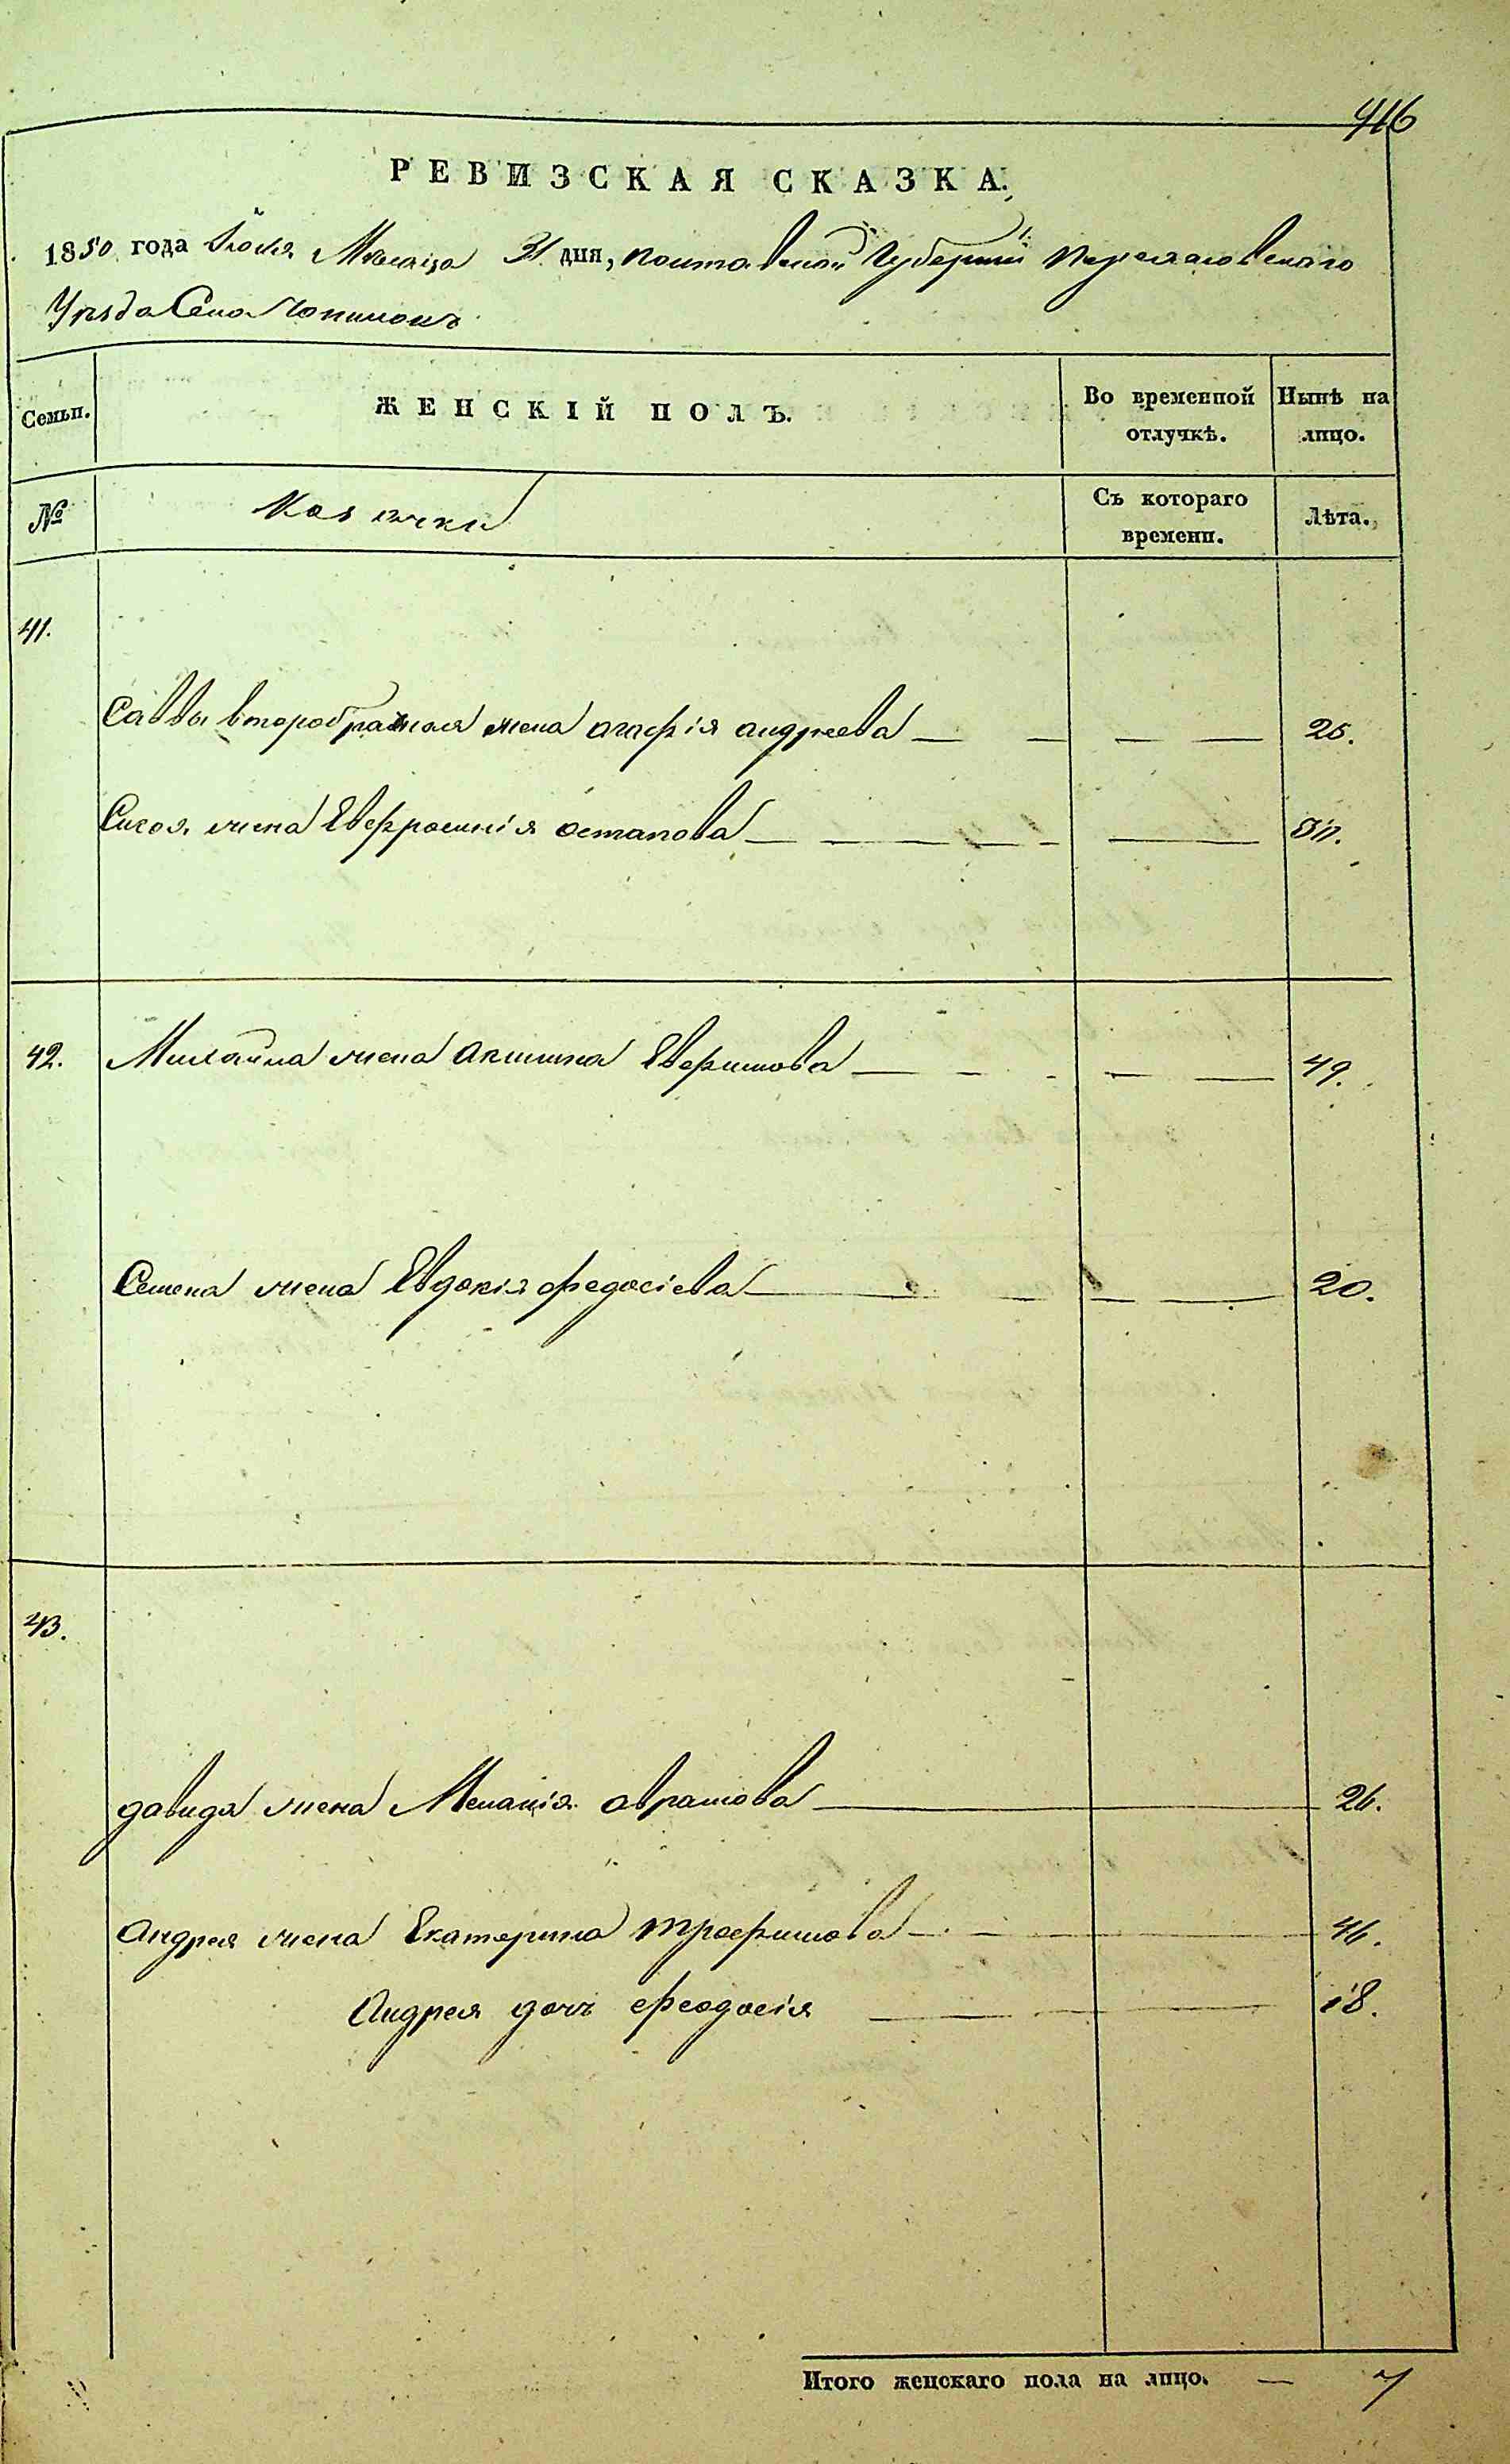 416
РЕВИЗСКАЯ СКАЗКА.
1850 года Іюля Месяца 31 дня, Полтавской Губерніи Переяславскаго
Уезда Села
Семьи.
ЖЕНСКІЙ ПОЛЪ.
Во временной отлучкѣ.
Нынѣ на лицо.
№
Козачки
Съ котораго времени.
Лѣта.
41.
Саввы второбрачная жена агафія андреева 25.
жена Евфросинія остапова
42. Михайла жена Акилина Евфимова 49.
Семена жена Евдокія федосіева 20.
43.
давида жена Меланія аврамова 26.
Андрея жена Екатерина трофимова 46.
Андрея дочь феодосія 18.
Итого женскаго пола на лицо. — 7